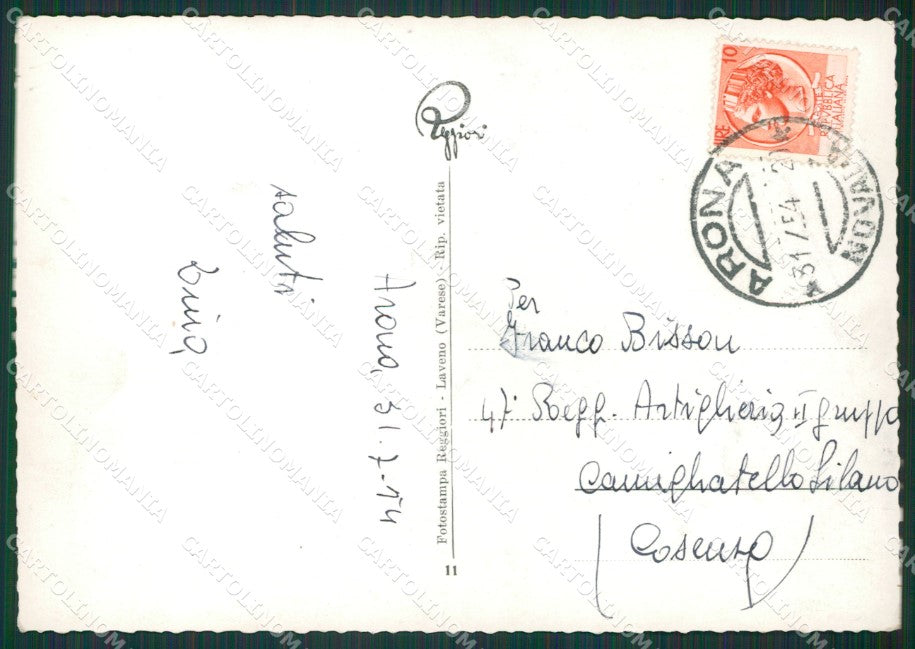 Reggiori
Arona, 31.7.54
saluti
Fotostampa Reggiori - Laveno (Varese) Rip. vietata
11
LIRE 10
REPUBBLICA
ITALIANA
ARONA
31 7 54
Per
Franco Bisson
47° Regg. Artiglieria II gruppo
Camighatello Silano
(Cosenza)
CARTOLINOMANIA